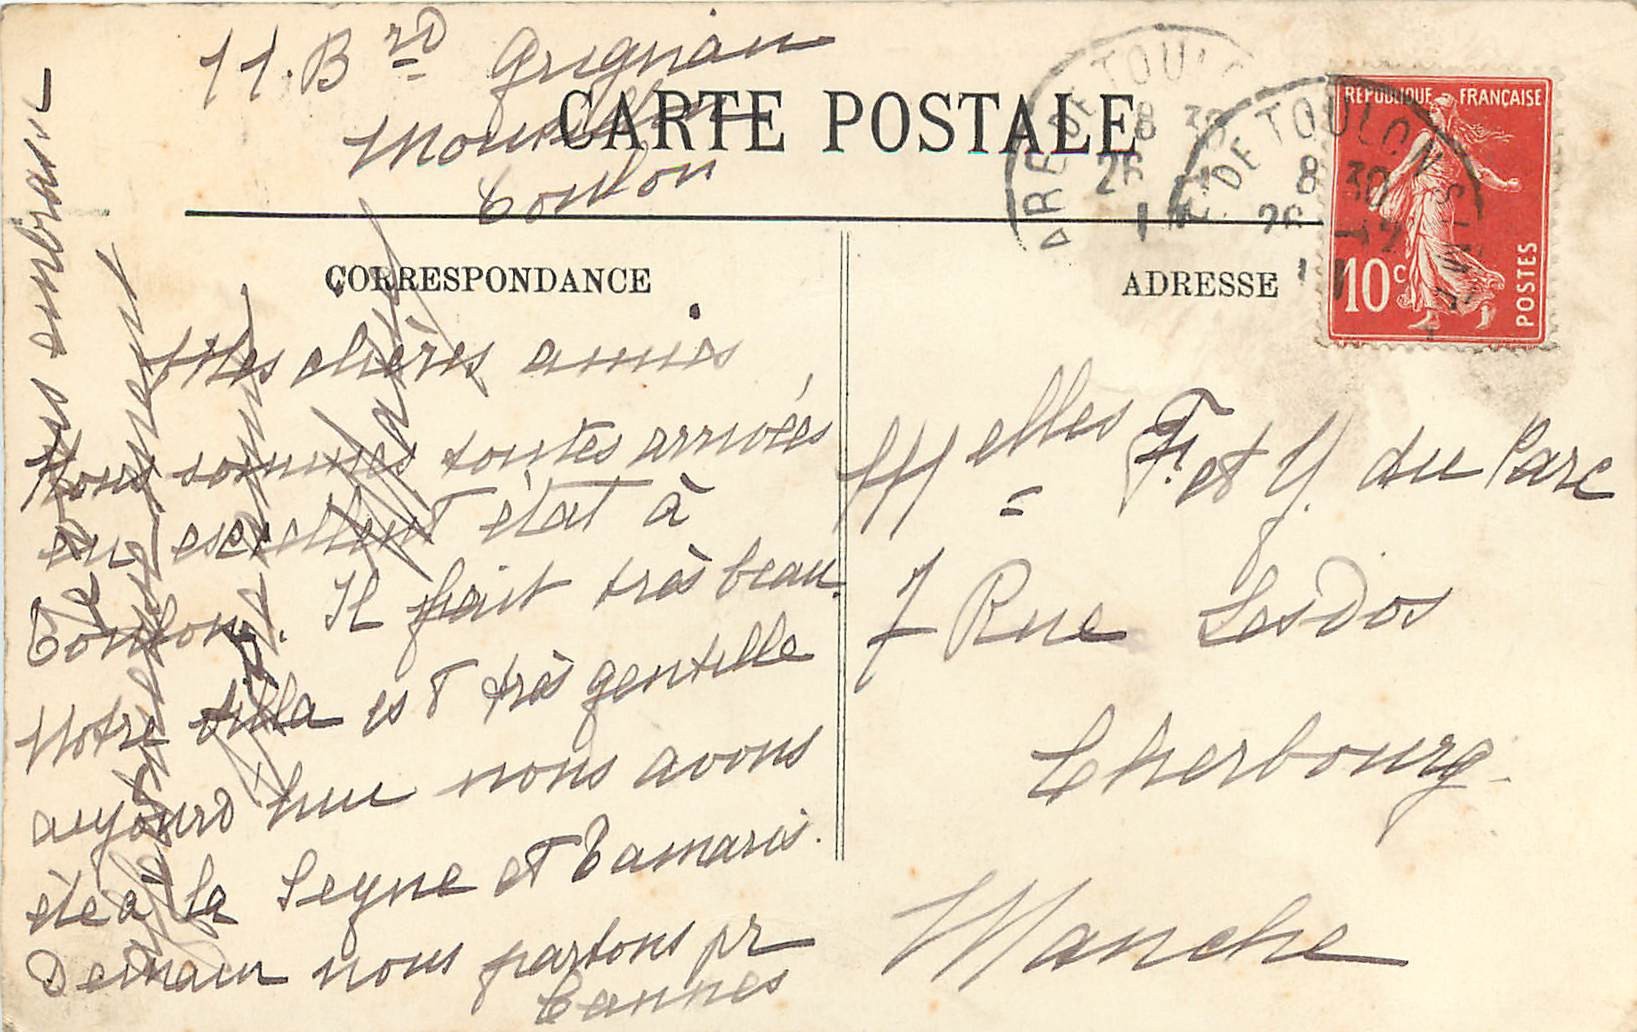 11. Brd Grignan
Mourillon
Toulon
CARTE POSTALE
CORRESPONDANCE
ADRESSE
Mes chères amies
Nous sommes toutes arrivées
en excellent état à
Toulon. Il fait très beau.
Notre villa est très gentille
aujourd'hui nous avons
été à la Seyne et Tamaris.
Demain nous partons pr
Cannes
Je vous embrasse
Melles F. et Y. du Parc
7 Rue Lesdos
Cherbourg
Manche
DE TOULON
8 30
26
DE TOULON S
8 30
26 -12
RÉPUBLIQUE FRANÇAISE
10c
POSTES